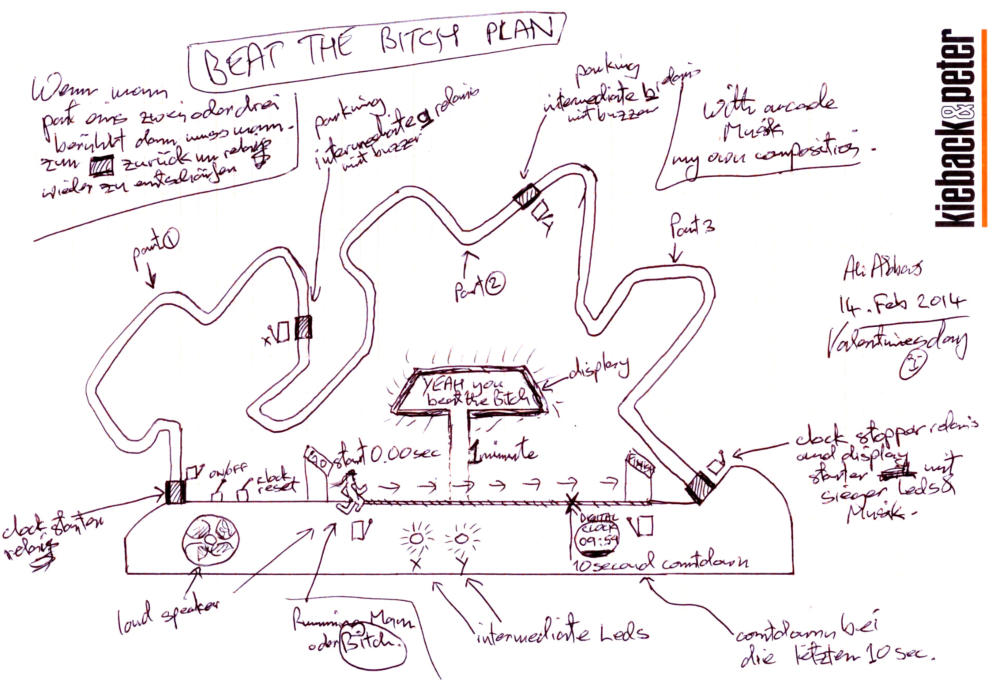 BEAT THE BITCH PLAN
kieback&peter
Wenn mann
part eins zwei oder drei
berühbt dann muss mann
zum zurück um relais
wieder zu entschärfen
parking
intermediate relais
mit buzzer
parking
intermediate relais
mit buzzer
with arcade
Musik
my own composition.
part 1
Part 2
Part 3
Ali Abbas
14. Feb 2014
Valentinesday
X
Y
YEAH you
beat the Bitch
display
clock starter
relais
ON/OFF
clock
reset
GO
start 0.00 sec
1 minute
clock stopper relais
and display
starter mit
sieger Leds &
Musik.
DIGITAL
CLOCK
09:59
10 second countdown
X
Y
loud speaker
Running Mann
oder Bitch.
intermediate Leds
countdown bei
die letzten 10 sec.